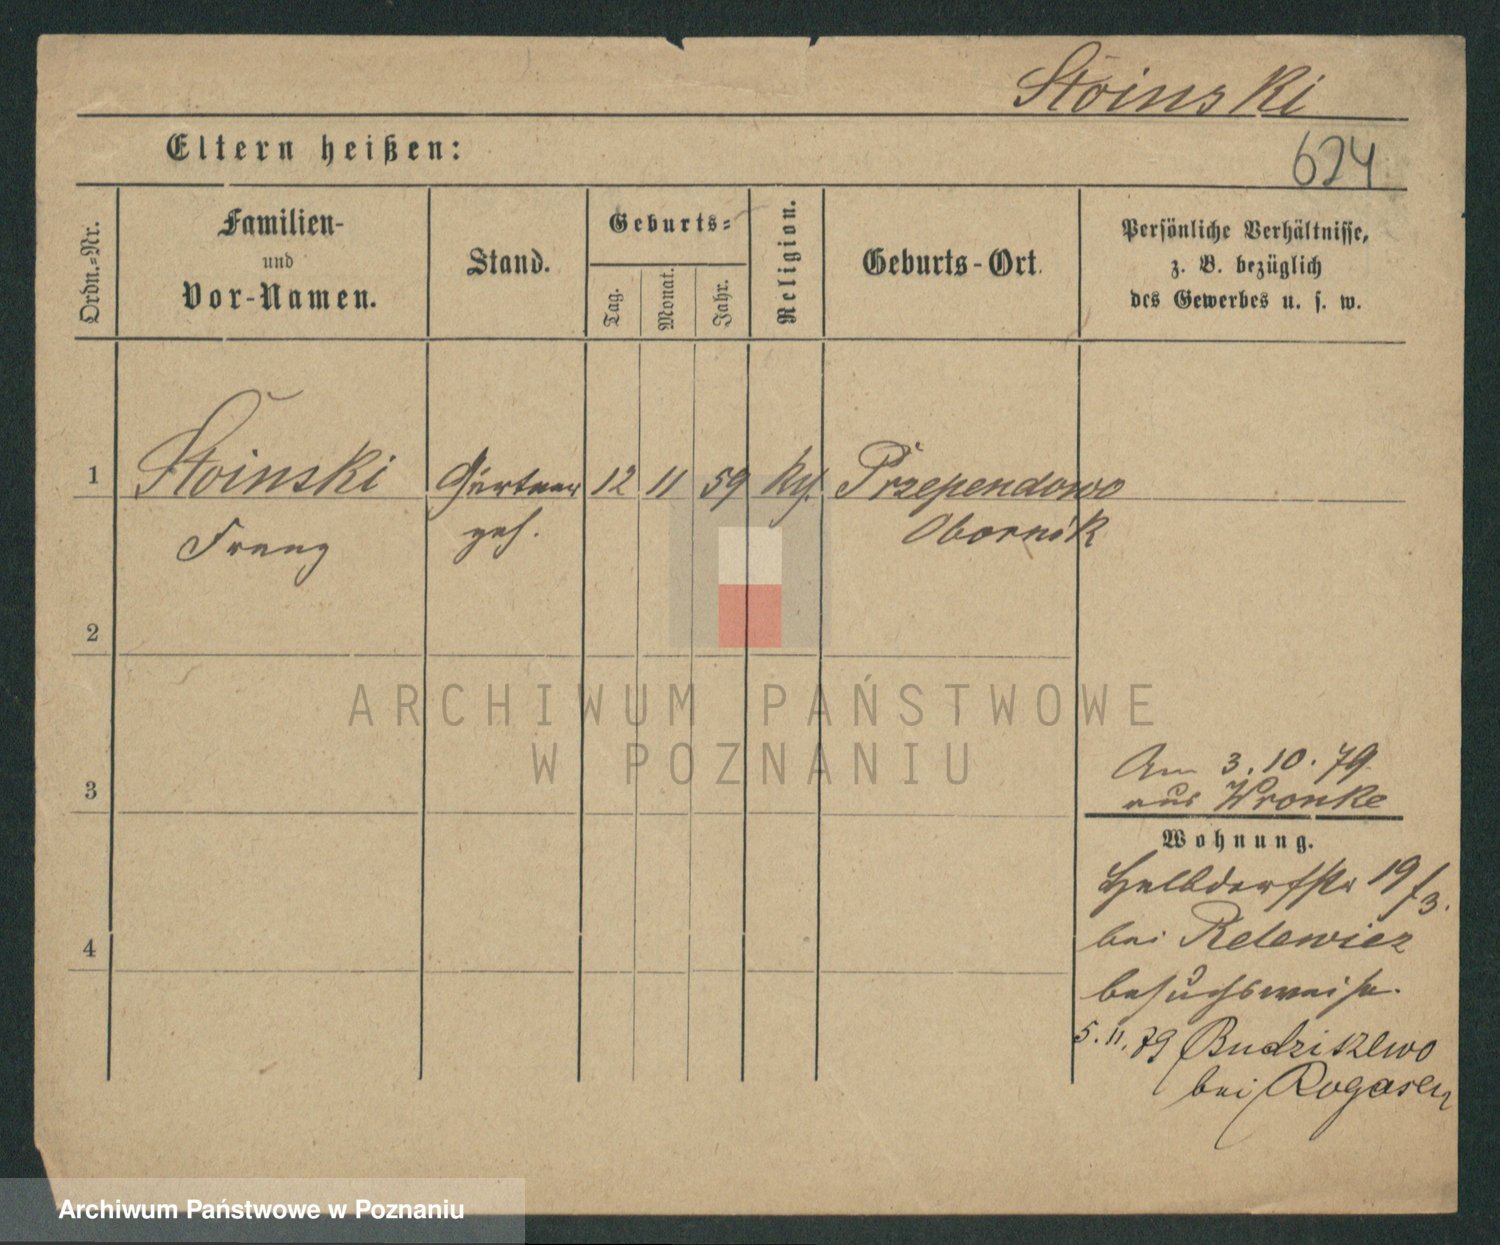 Stoinski
Eltern heißen:
624
Ordn.-Nr.
Familien-
und
Vor-Namen.
Stand.
Geburts-
Tag.
Monat.
Jahr.
Religion.
Geburts-Ort.
Persönliche Verhältnisse,
z. B. bezüglich
des Gewerbes u. s. w.
1 Stoinski Gärtner 12 11 59 kth. Przependowo
Franz geh. Obornik
2
ARCHIWUM PAŃSTWOWE
W POZNANIU
Am 3.10.79
3 aus Wronke
Wohnung.
Halbdorfstr 19/3.
bei Relewicz
4
besuchsweise.
5.11.79 Budziszewo
bei Rogasen
Archiwum Państwowe w Poznaniu